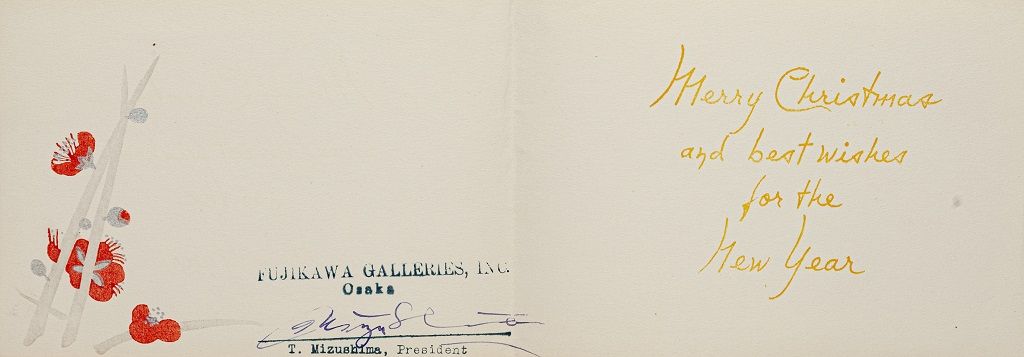 FUJIKAWA GALLERIES, INC.
Osaka
T. Mizushima, President
Merry Christmas
and best wishes
for the
New Year